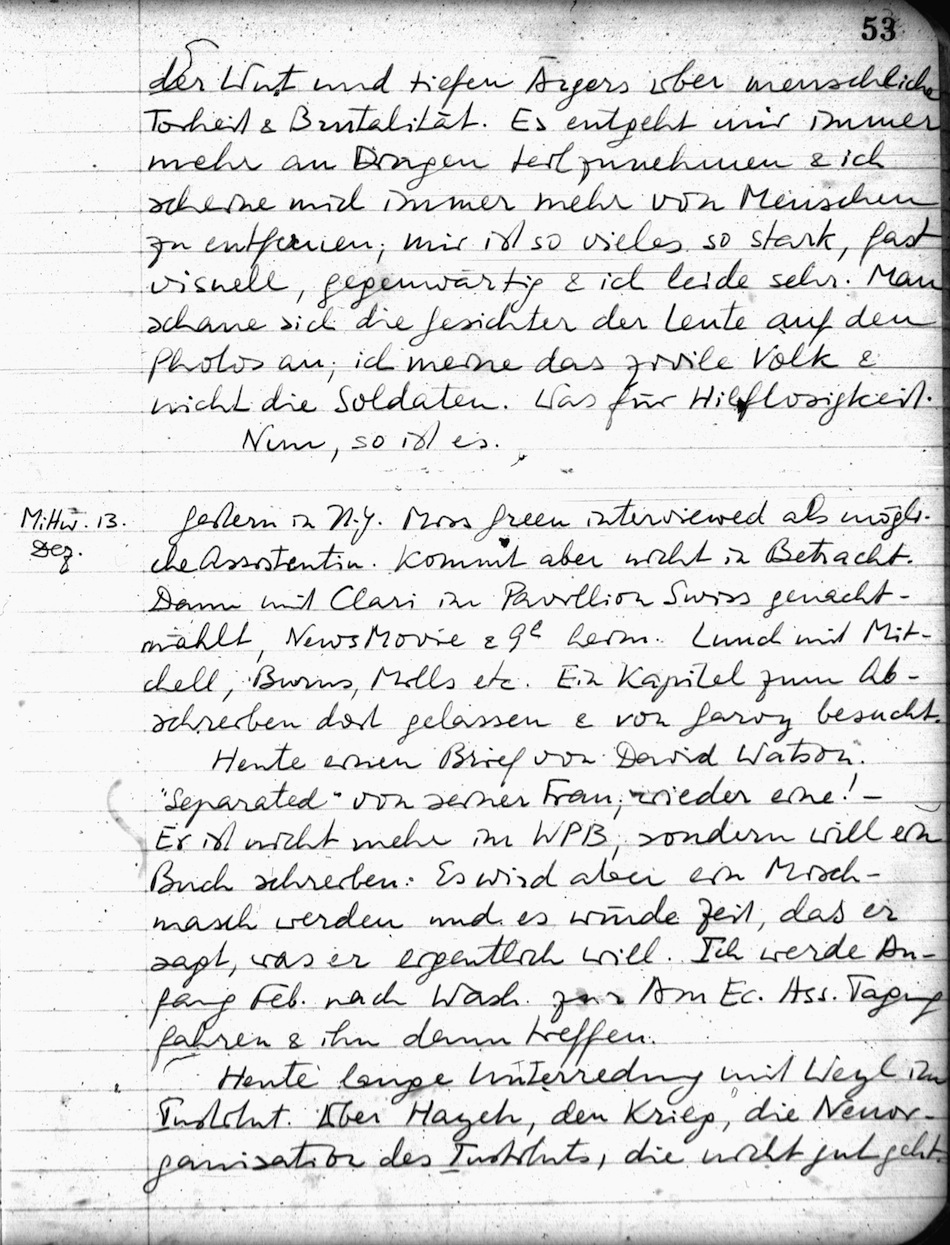 53
der Wut und tiefen Ärgers über menschliche
Torheit & Brutalität. Es entgeht mir immer
mehr an Dingen teilzunehmen & ich
scheine mich immer mehr von Menschen
zu entfernen; mir ist so vieles so stark, fast
visuell, gegenwärtig & ich leide sehr. Man
schaue sich die Gesichter der Leute auf den
Photos an; ich meine das zivile Volk &
nicht die Soldaten. Was für Hilflosigkeit.
Nun, so ist es.
Mittw. 13. Gestern in N.Y. Miss Green interviewed als mögli-
Dez. che Assistentin. Kommt aber nicht in Betracht.
Dann mit Clari im Pavillion Swiss genacht-
mahlt, News Movie & 9h heim. Lunch mit Mit-
chell, Burns, Mills etc. Ein Kapitel zum Ab-
schreiben dort gelassen & von Garvy besucht.
Heute einen Brief von David Watson.
"Separated" von seiner Frau; wieder eine! –
Er ist nicht mehr im WPB, sondern will ein
Buch schreiben: Es wird aber ein Misch-
masch werden und es würde Zeit, das er
sagt, was er eigentlich will. Ich werde An-
fang Feb. nach Wash. zur Am Ec. Ass. Tagung
fahren & ihn dann treffen.
Heute lange Unterredung mit Weyl im
Institut. Über Hayek, den Krieg, die Neuor-
ganisation des Instituts, die nicht gut geht.